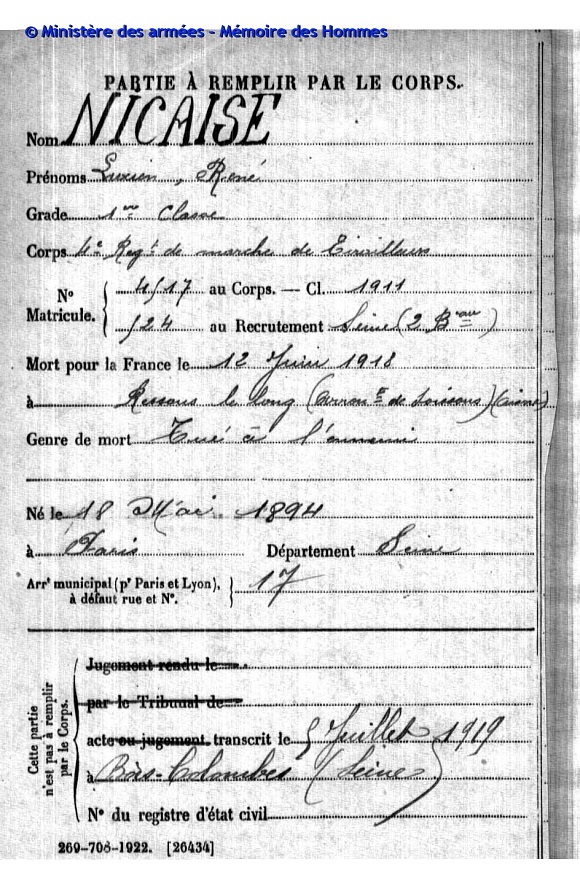 © Ministère des armées - Mémoire des Hommes
PARTIE À REMPLIR PAR LE CORPS.
Nom NICAISE
Prénoms Lucien, René
Grade 1re Classe
Corps 4e Regt de marche de Tirailleurs
No Matricule. 4517 au Corps. — Cl. 1911
524 au Recrutement Seine (2 Bau)
Mort pour la France le 12 Juin 1918
à Ressons le long (arront de Soissons) (Aisne)
Genre de mort Tué à l'ennemi
Né le 18 Mai 1894
à Paris Département Seine
Arrt municipal (pr Paris et Lyon), à défaut rue et No. 17
Cette partie n'est pas à remplir par le Corps.
Jugement rendu le
par le Tribunal de
acte ou jugement transcrit le 5 Juillet 1919
à Bois-Colombes (Seine)
No du registre d'état civil
269-708-1922. [26434]